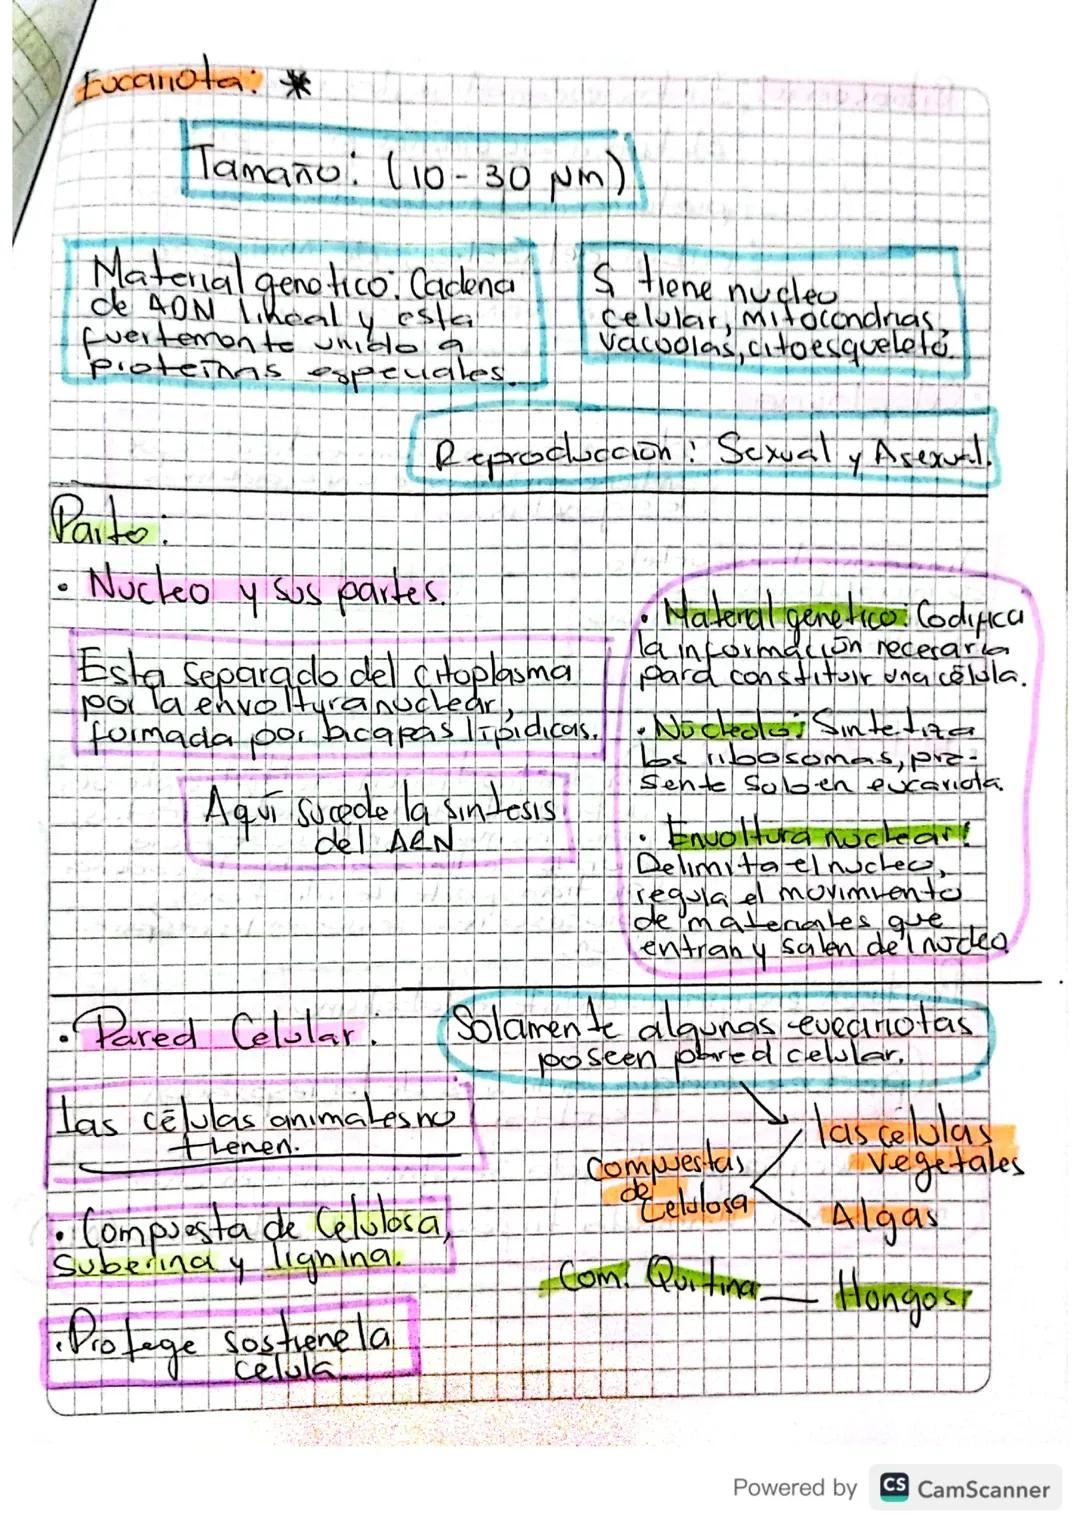 Eucariota: *
Tamaño: (10-30 µm)
Material genetico: Cadena
de ADN lineal y esta
fuertemente unido a
proteinas especiales.
Si tiene nucleo
celular, mitocondrias,
vacuolas, citoesqueleto.
Reproducción: Sexual y Asexual.
Parte:
• Nucleo y sus partes.
Esta separado del citoplasma
por la envoltura nuclear,
formada por bicapas lipidicas.
Aquí sucede la sintesis
del ARN
• Material genetico: Codifica
la información necesaria
para constituir una célula.
• Nucleolo: Sintetiza
los ribosomas, pre-
sente solo en eucariota.
• Envoltura nuclear:
Delimita el nucleo,
regula el movimiento
de materiales que
entran y salen del nucleo
• Pared Celular:
Solamente algunas eucariotas
poseen pared celular.
las células animales no
tienen.
• Compuesta de Celulosa,
suberina y lignina.
• Protege sostiene la
celula.
compuestas
de
Celulosa
las celulas
vegetales
Algas
Com. Quitina — Hongos
Powered by CS CamScanner